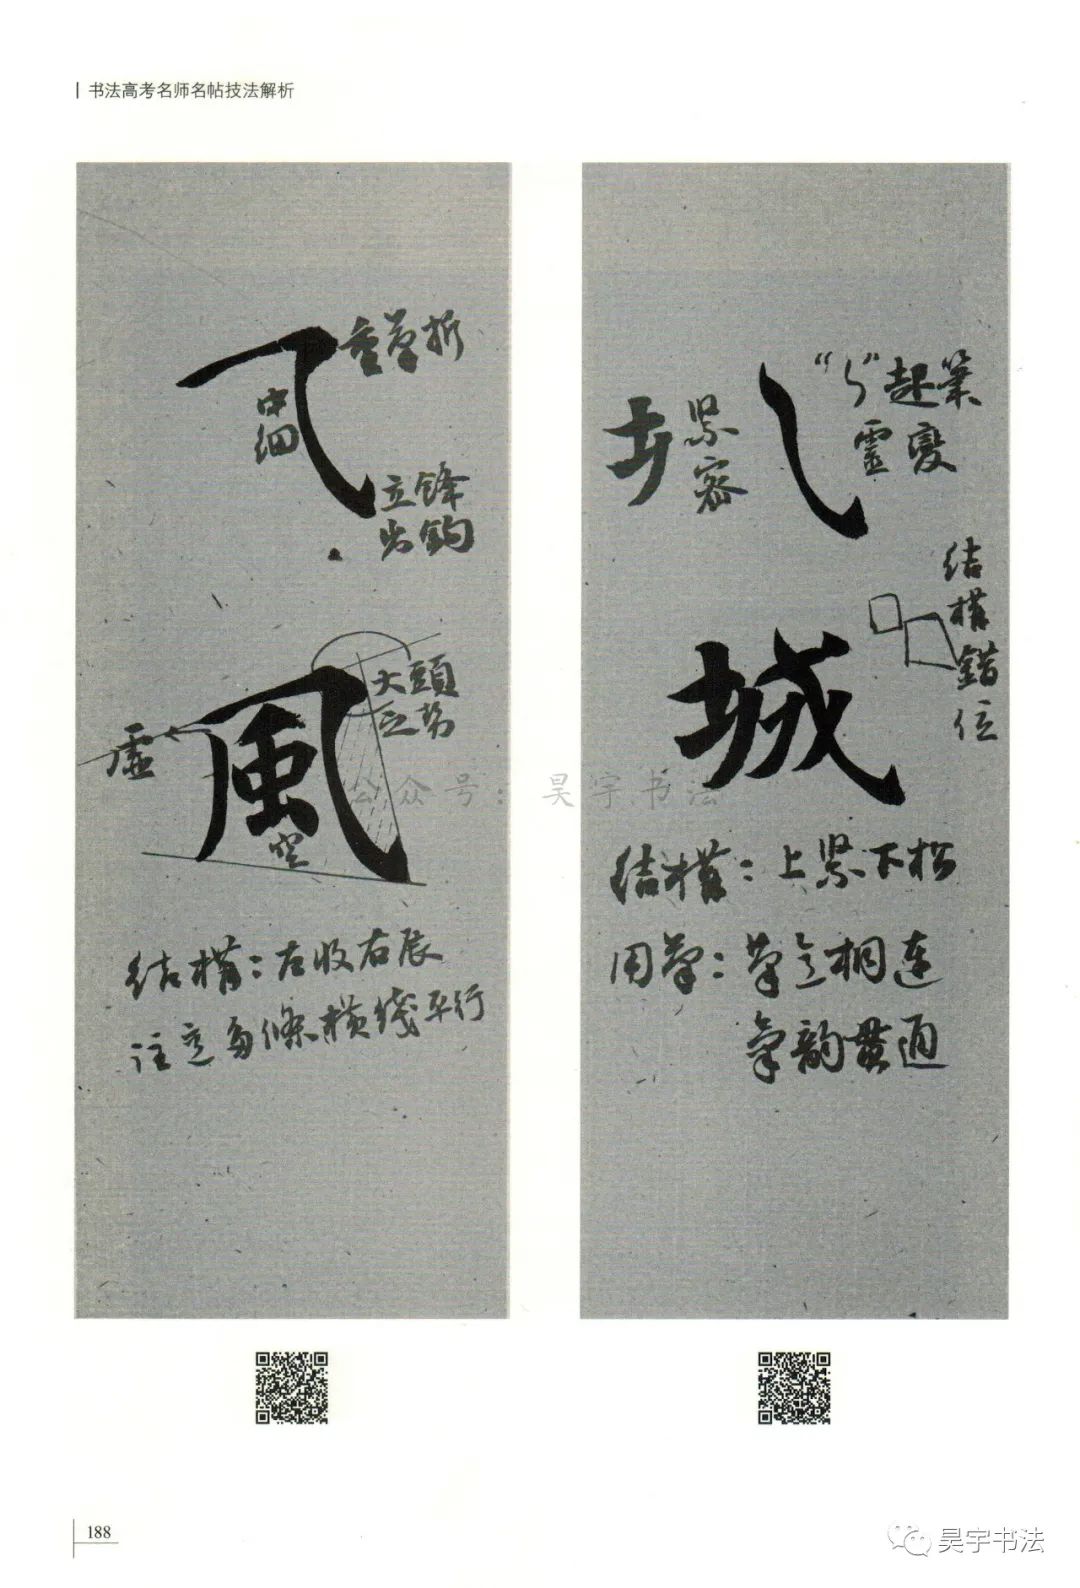 书法高考名师名帖技法解析
重笔折
中细
立锋
出钩
大頭
之势
虚
風
空
结構：左收右展
注意多條横线平行
紧密
“㇂”起筆
靈變
结構錯位
城
结構：上紧下松
用笔：笔意相連
氣韵贯通
公众号：昊宇书法
188
昊宇书法